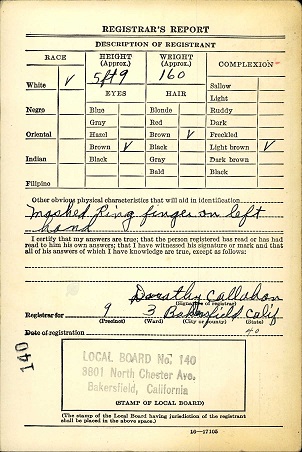 REGISTRAR'S REPORT
DESCRIPTION OF REGISTRANT
RACE
HEIGHT (Approx.)
WEIGHT (Approx.)
COMPLEXION
White ✓
5 ft 9
160
Sallow
Light
EYES
HAIR
Negro
Blue
Blonde
Ruddy
Gray
Red
Dark
Oriental
Hazel
Brown ✓
Freckled
Brown ✓
Black
Light brown ✓
Indian
Black
Gray
Dark brown
Bald
Black
Filipino
Other obvious physical characteristics that will aid in identification
Mashed Ring finger on left
hand
I certify that my answers are true; that the person registered has read or has had
read to him his own answers; that I have witnessed his signature or mark and that
all of his answers of which I have knowledge are true, except as follows:
Dorothy Callahan
(Signature of registrar)
Registrar for 9 3 Bakersfield Calif
(Precinct) (Ward) (City or county) (State)
Date of registration 40
140
LOCAL BOARD No. 140
3801 North Chester Ave.
Bakersfield, California
(STAMP OF LOCAL BOARD)
(The stamp of the Local Board having jurisdiction of the registrant
shall be placed in the above space.)
16—17105